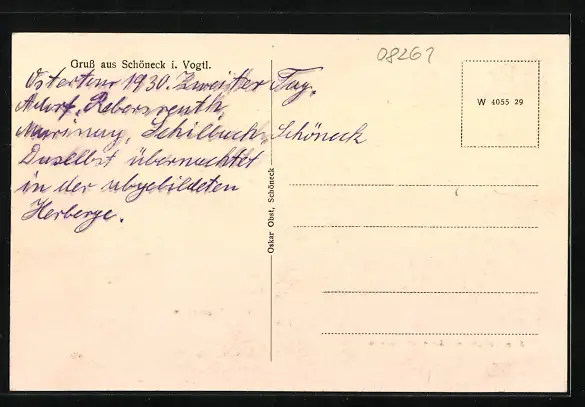 08261
Gruß aus Schöneck i. Vogtl.
Ostertour 1930. Zweiter Tag.
Adorf, Rebersreuth,
Schilbach, Schöneck
Daselbst übernachtet
in der abgebildeten
Herberge.
W 4055 29
Oskar Obst, Schöneck